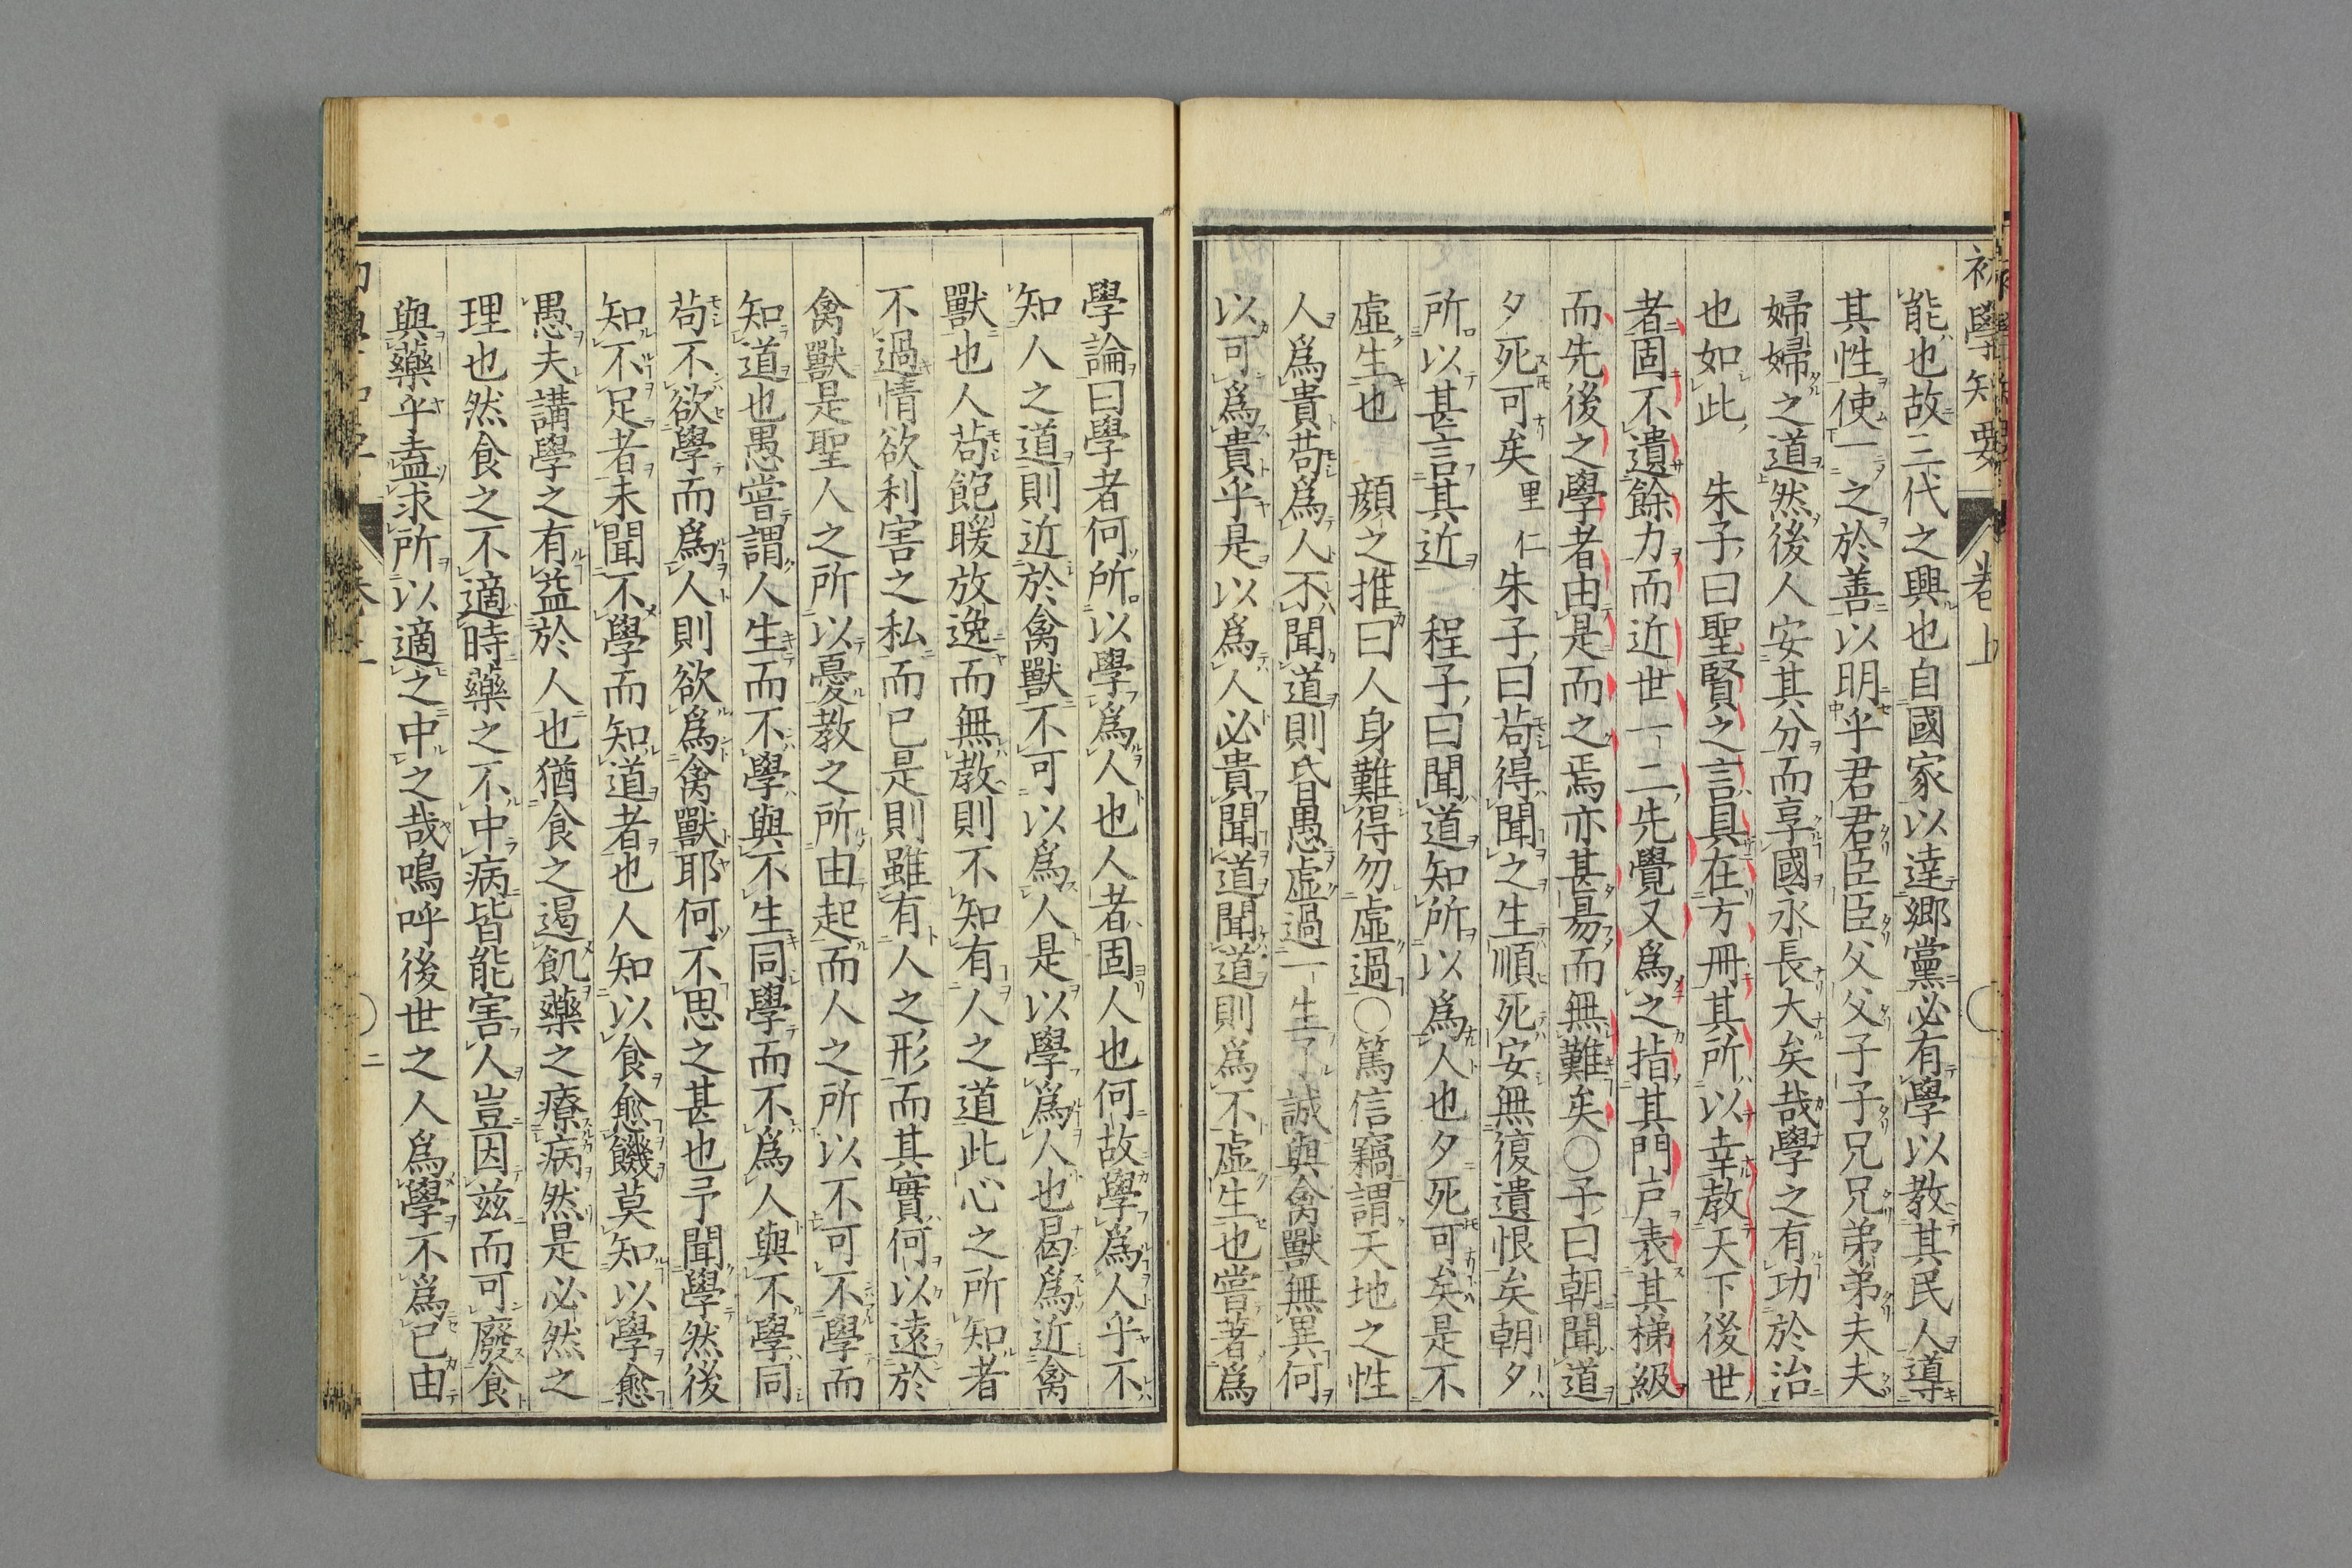 初學知要 卷上
能也故三代之興也自國家以達鄉黨必有學以教其民人導
其性使一之於善以明乎君君臣臣父父子子兄兄弟弟夫夫
婦婦之道然後人安其分而享國永長大矣哉學之有功於治
也如此 朱子曰聖賢之言具在方冊其所以幸教天下後世
者固不遺餘力而近世一二先覺又爲之指其門戸表其梯級
而先後之學者由是而之焉亦甚易而無難矣〇子曰朝聞道
夕死可矣 里仁 朱子曰苟得聞之生順死安無復遺恨矣朝夕
所以甚言其近 程子曰聞道知所以爲人也夕死可矣是不
虛生也 顔之推曰人身難得勿虛過〇篤信竊謂天地之性
人爲貴苟爲人不聞道則昏愚虛過一生了誠與禽獸無異何
以可爲貴乎是以爲人必貴聞道聞道則爲不虛生也嘗著爲
學論曰學者何所以學爲人也人者固人也何故學爲人乎不
知人之道則近於禽獸不可以爲人是以學爲人也曷爲近禽
獸也人苟飽暖放逸而無教則不知有人之道此心之所知者
不過情欲利害之私而已是則雖有人之形而其實何以遠於
禽獸是聖人之所以憂教之所由起而人之所以不可不學而
知道也愚嘗謂人生而不學與不生同學而不爲人與不學同
苟不欲學而爲人則欲爲禽獸耶何不思之甚也予聞學然後
知不足者未聞不學而知道者也人知以食愈饑莫知以學愈
愚夫講學之有益於人也猶食之遏飢藥之療病然是必然之
理也然食之不適時藥之不中病皆能害人豈因茲而可廢食
與藥乎盍求所以適之中之哉嗚呼後世之人爲學不爲已由
二